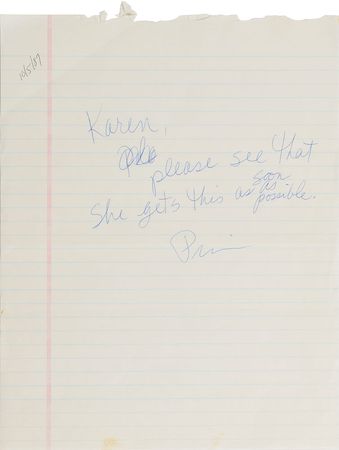 10/5/87
Karen,
please see that
she gets this as soon as
possible.